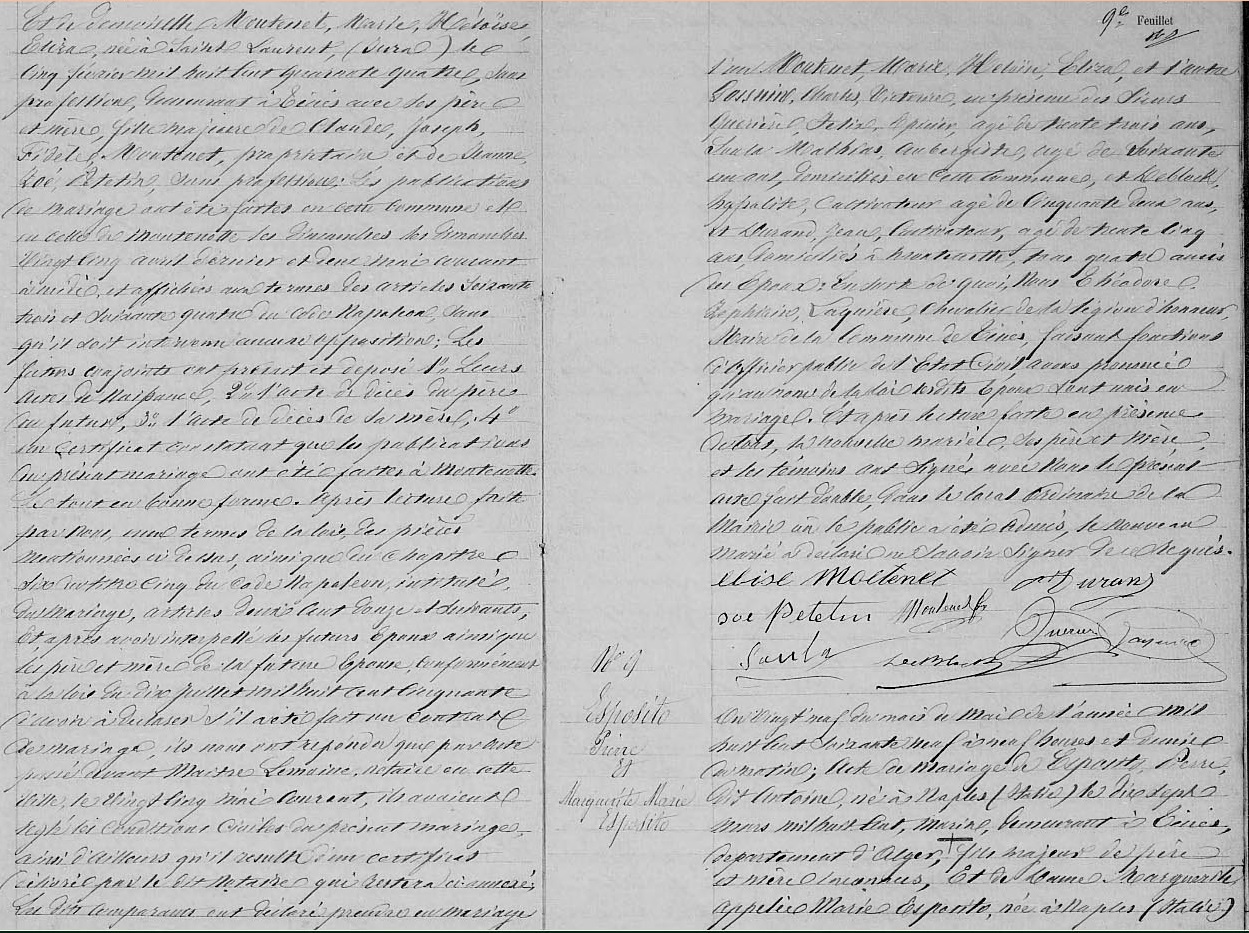 Et de demoiselle Moutenet, Marie, Héloïse
Eliza, née à Saint Laurent, (Jura) le
cinq février mil huit cent quarante quatre, sans
profession, demeurant à Ténès avec ses père
et mère, fille majeure de Claude, Joseph,
Fidèle, Moutenet, propriétaire et de Jeanne,
Zoé, Petetin, sans profession; Les publications
de mariage ont été faites en cette commune et
en celle de Montenotte les dimanches les dimanches
vingt cinq avril dernier et deux mai courant
à midi, et affichées aux termes des articles soixante
trois et soixante quatre du code Napoléon, sans
qu'il soit intervenu aucune opposition; Les
futurs conjoints ont produit et déposé 1º Leurs
actes de naissance, 2º l'acte de décès du père
du futur, 3º l'acte de décès de sa mère, 4º
un certificat constatant que les publications
du présent mariage ont été faites à Montenotte.
Le tout en bonne forme. Après lecture faite
par nous, aux termes de la loi, des pièces
mentionnées ci dessus, ainsi que du chapitre
six du titre cinq du Code Napoléon, intitulé,
du Mariage, articles deux cent douze et suivants,
Et, après avoir interpellé les futurs époux ainsi que
les père et mère de la future épouse, conformément
à la loi du dix juillet mil huit cent cinquante
d'avoir à déclarer s'il a été fait un contrat
de mariage, ils nous ont répondu que par acte
passé devant Maître Lemoine, notaire en cette
ville, le vingt cinq mai courant, ils avaient
réglé les conditions civiles du présent mariage,
ainsi d'ailleurs qu'il résulte d'un certificat
délivré par le dit notaire qui restera ci annexé;
Les dits comparants ont déclaré prendre en mariage
9e Feuillet
l'un Moutenet, Marie, Héloïse, Eliza, et l'autre
Charles, Victoire, en présence des Sieurs
Felix, Epicier, agé de trente trois ans,
Soula Mathias, aubergiste, agé de soixante
un ans, domiciliés en cette commune, et
hypolite, cultivateur agé de cinquante deux ans,
et Durand, Jean, cultivateur, agé de trente cinq
ans, domiciliés à Montenotte, tous quatre amis
des Epoux; En suite de quoi, Nous Théodore
Laquière, Chevalier de la légion d'honneur
Maire de la Commune de Ténès, faisant fonctions
d'officier public de l'Etat Civil, avons prononcé
qu'au nom de la loi lesdits Epoux sont unis en
mariage. Et après lecture faite en présence
de tous, la nouvelle mariée, ses père et mère,
et les témoins ont signés avec Nous le présent
acte fait double, dans le local ordinaire de la
Mairie où le public a été admis, le nouveau
marié a déclaré ne savoir signer de ce Requis.
elise Moltenet Durand
Petetin Moutenet
Soula
No 9
Esposito
Pierre
Et
Marguerite Marie
Esposito
Du vingt neuf du mois de Mai de l'année mil
huit cent soixante neuf à neuf heures et demie
du matin; Acte de mariage de Esposito, Pierre,
dit Antoine, né à Naples (Italie) le dix sept
mars mil huit cent, Marin, demeurant à Ténès,
département d'Alger, fils majeur de père
et mère inconnus, Et de Dame Marguerite
appelée Marie Esposito, née à Naples (Italie)